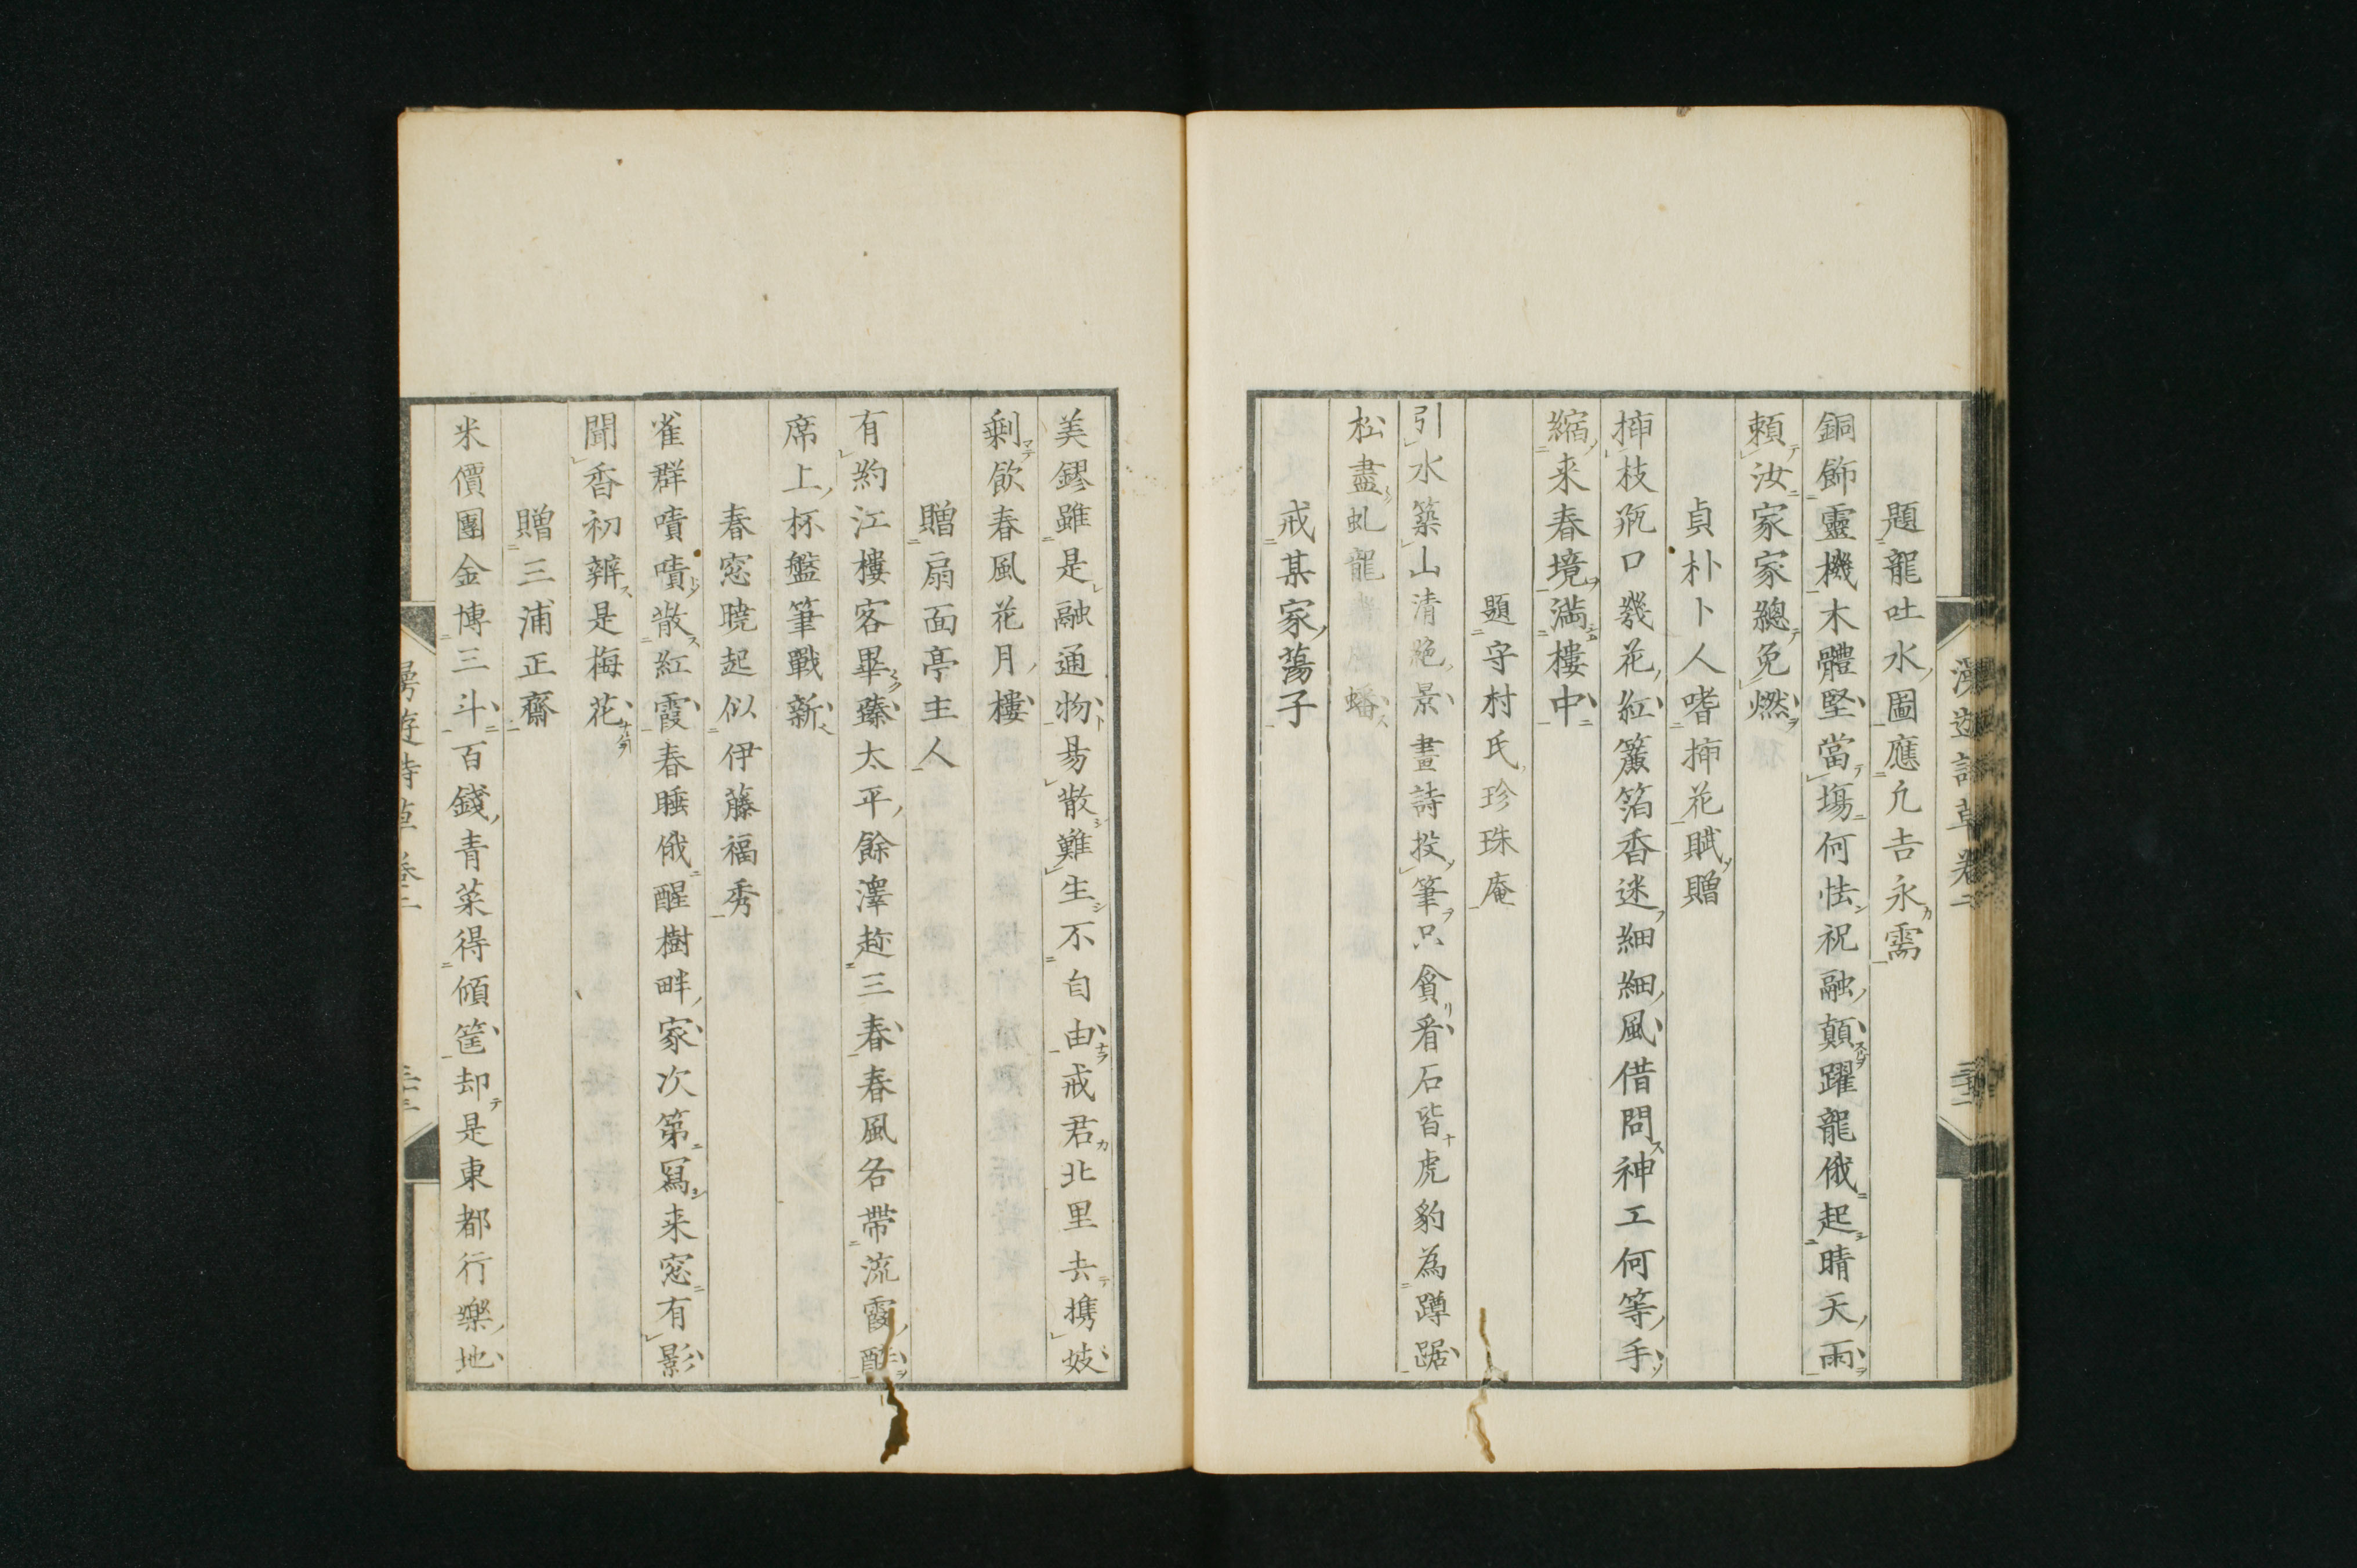 題龍吐水圖應允吉永需
銅飾靈機木體堅當場何怯祝融顛躍龍俄起晴天雨
頼汝家家總免燃
貞朴卜人嗜挿花賦贈
挿枝瓶口幾花紅簾箔香迷細細風借問神工何等手
縮来春境満樓中
題守村氏珍珠庵
引水築山清絶景畫詩投筆只貪看石皆虎豹為蹲踞
松盡虬龍蟠
戒某家蕩子
美鏐雖是融通物易散難生不自由戒君北里去携妓
剰飲春風花月樓
贈扇面亭主人
有約江樓客畢臻太平餘澤趂三春春風各帶流霞酔
席上杯盤筆戰新
春窓暁起似伊藤福秀
雀群嘖嘖散紅霞春睡俄醒樹畔家次第寫来窓有影
聞香初辨是梅花
贈三浦正齋
米價團金博三斗百錢青菜得傾筐却是東都行樂地
漫遊詩草卷二